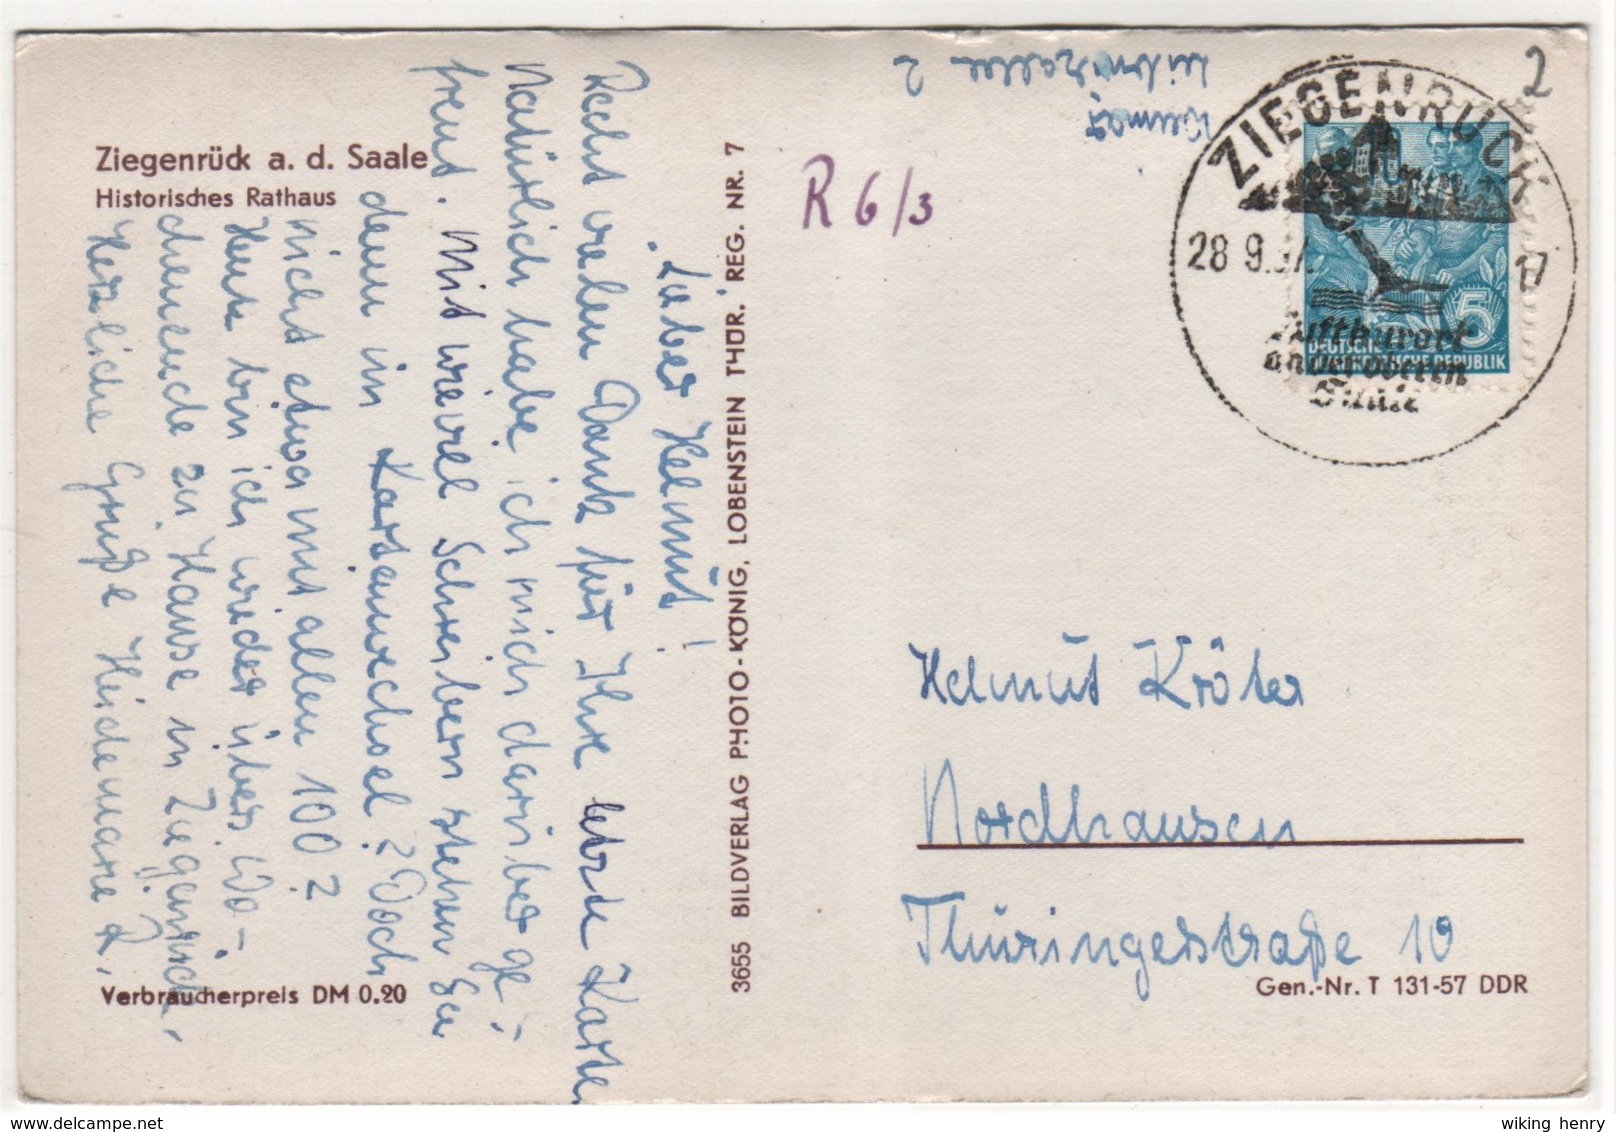 Ziegenrück a. d. Saale
Historisches Rathaus
Lieber Helmut!
Recht vielen Dank für Ihre letzte Karte.
Natürlich habe ich mich darüber ge-
freut. Mit wieviel Schreibern stehen Sie
denn im Kartenwechsel? Doch
nicht etwa mit allen 100?
Heute bin ich wieder übers Wo-
chenende zu Hause in Ziegenrück.
Herzliche Grüße Heidemarie R.
Verbraucherpreis DM 0.20
3655 BILDVERLAG PHOTO-KÖNIG, LOBENSTEIN THÜR. REG. NR. 7
R 6/3
Weimar
2
2
ZIEGENRÜCK
28 9.57. 17
Luftkurort
an der oberen
Saale
10
5
DEUTSCHE
DEMOKRATISCHE REPUBLIK
Helmut Kröter
Nordhausen
Thüringerstraße 10
Gen.-Nr. T 131-57 DDR
wiking henry